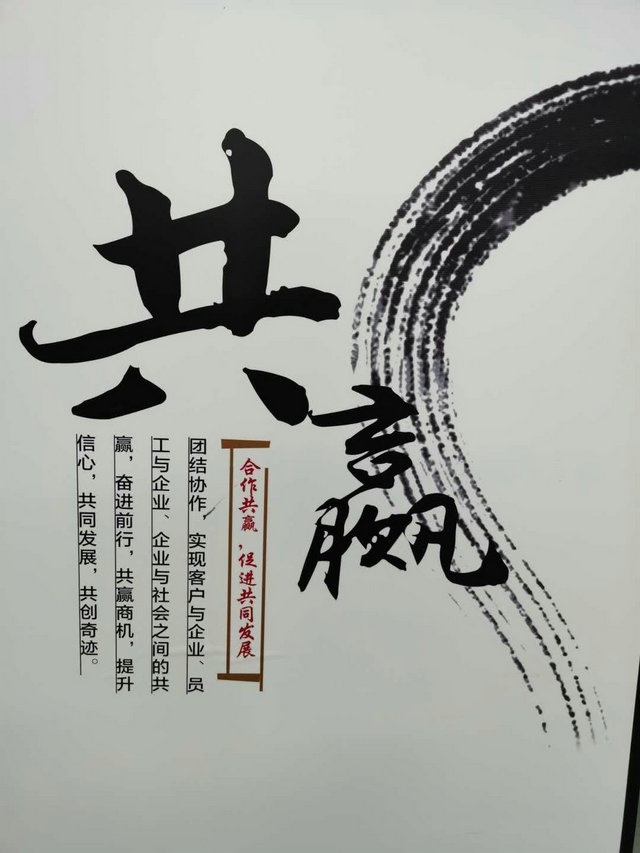 共赢
合作共赢，促进共同发展
团结协作，实现客户与企业、员
工与企业、企业与社会之间的共
赢，奋进前行，共赢商机，提升
信心，共同发展，共创奇迹。